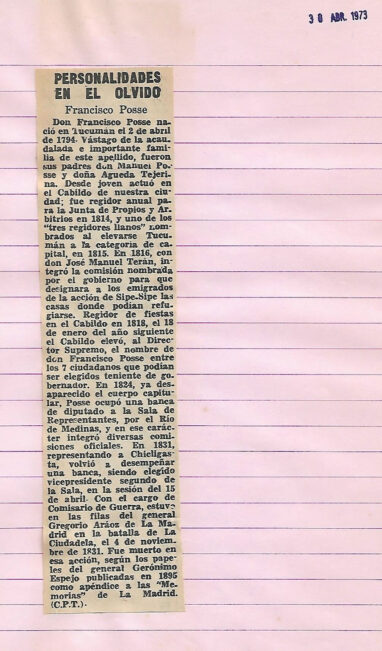 30 ABR. 1973
PERSONALIDADES
EN EL OLVIDO
Francisco Posse
Don Francisco Posse na-
ció en Tucumán el 2 de abril
de 1794. Vástago de la acau-
dalada e importante fami-
lia de este apellido, fueron
sus padres don Manuel Po-
sse y doña Agueda Tejeri-
na. Desde joven actuó en
el Cabildo de nuestra ciu-
dad; fue regidor anual pa-
ra la Junta de Propios y Ar-
bitrios en 1814, y uno de los
"tres regidores llanos" nom-
brados al elevarse Tucu-
mán a la categoría de ca-
pital, en 1815. En 1816, con
don José Manuel Terán, in-
tegró la comisión nombrada
por el gobierno para que
designara a los emigrados
de la acción de Sipe-Sipe las
casas donde podían refu-
giarse. Regidor de fiestas
en el Cabildo en 1818, el 18
de enero del año siguiente
el Cabildo elevó, al Direc-
tor Supremo, el nombre de
don Francisco Posse entre
los 7 ciudadanos que podían
ser elegidos teniente de go-
bernador. En 1824, ya des-
aparecido el cuerpo capitu-
lar, Posse ocupó una banca
de diputado a la Sala de
Representantes, por el Río
de Medinas, y en ese carác-
ter integró diversas comi-
siones oficiales. En 1831,
representando a Chicligas-
ta, volvió a desempeñar
una banca, siendo elegido
vicepresidente segundo de
la Sala, en la sesión del 15
de abril. Con el cargo de
Comisario de Guerra, estuvo
en las filas del general
Gregorio Aráoz de La Ma-
drid en la batalla de La
Ciudadela, el 4 de noviem-
bre de 1831. Fue muerto en
esa acción, según los pape-
les del general Gerónimo
Espejo publicadas en 1895
como apéndice a las "Me-
morias" de La Madrid.
(C.P.T.).